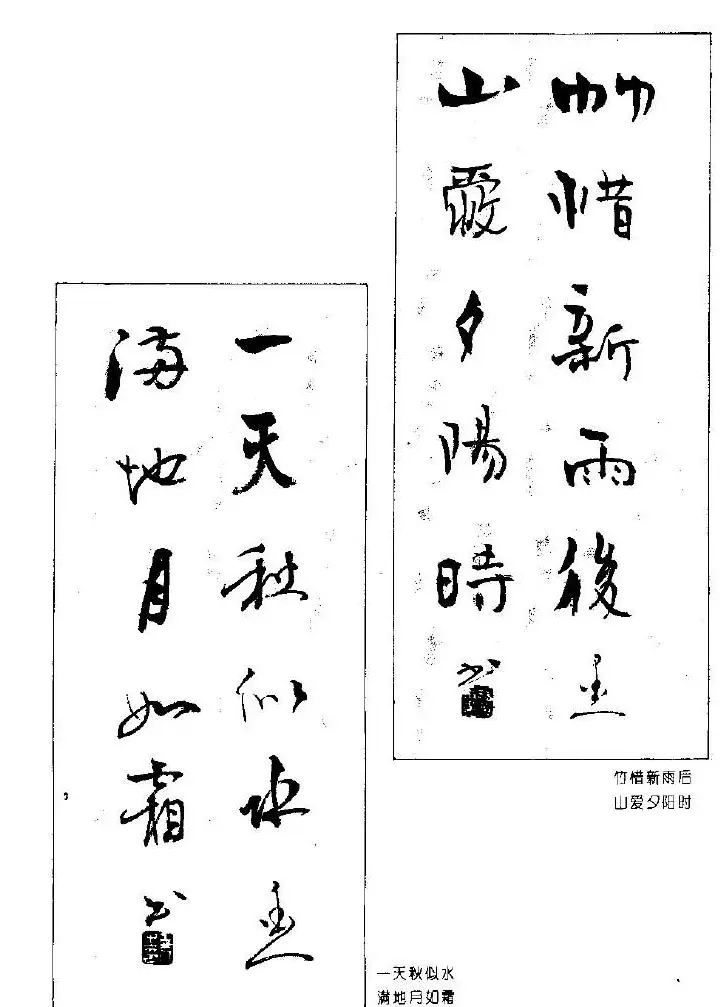 竹惜新雨後
山愛夕陽時
书
竹惜新雨后
山爱夕阳时
一天秋似水
滿地月如霜
书
一天秋似水
满地月如霜